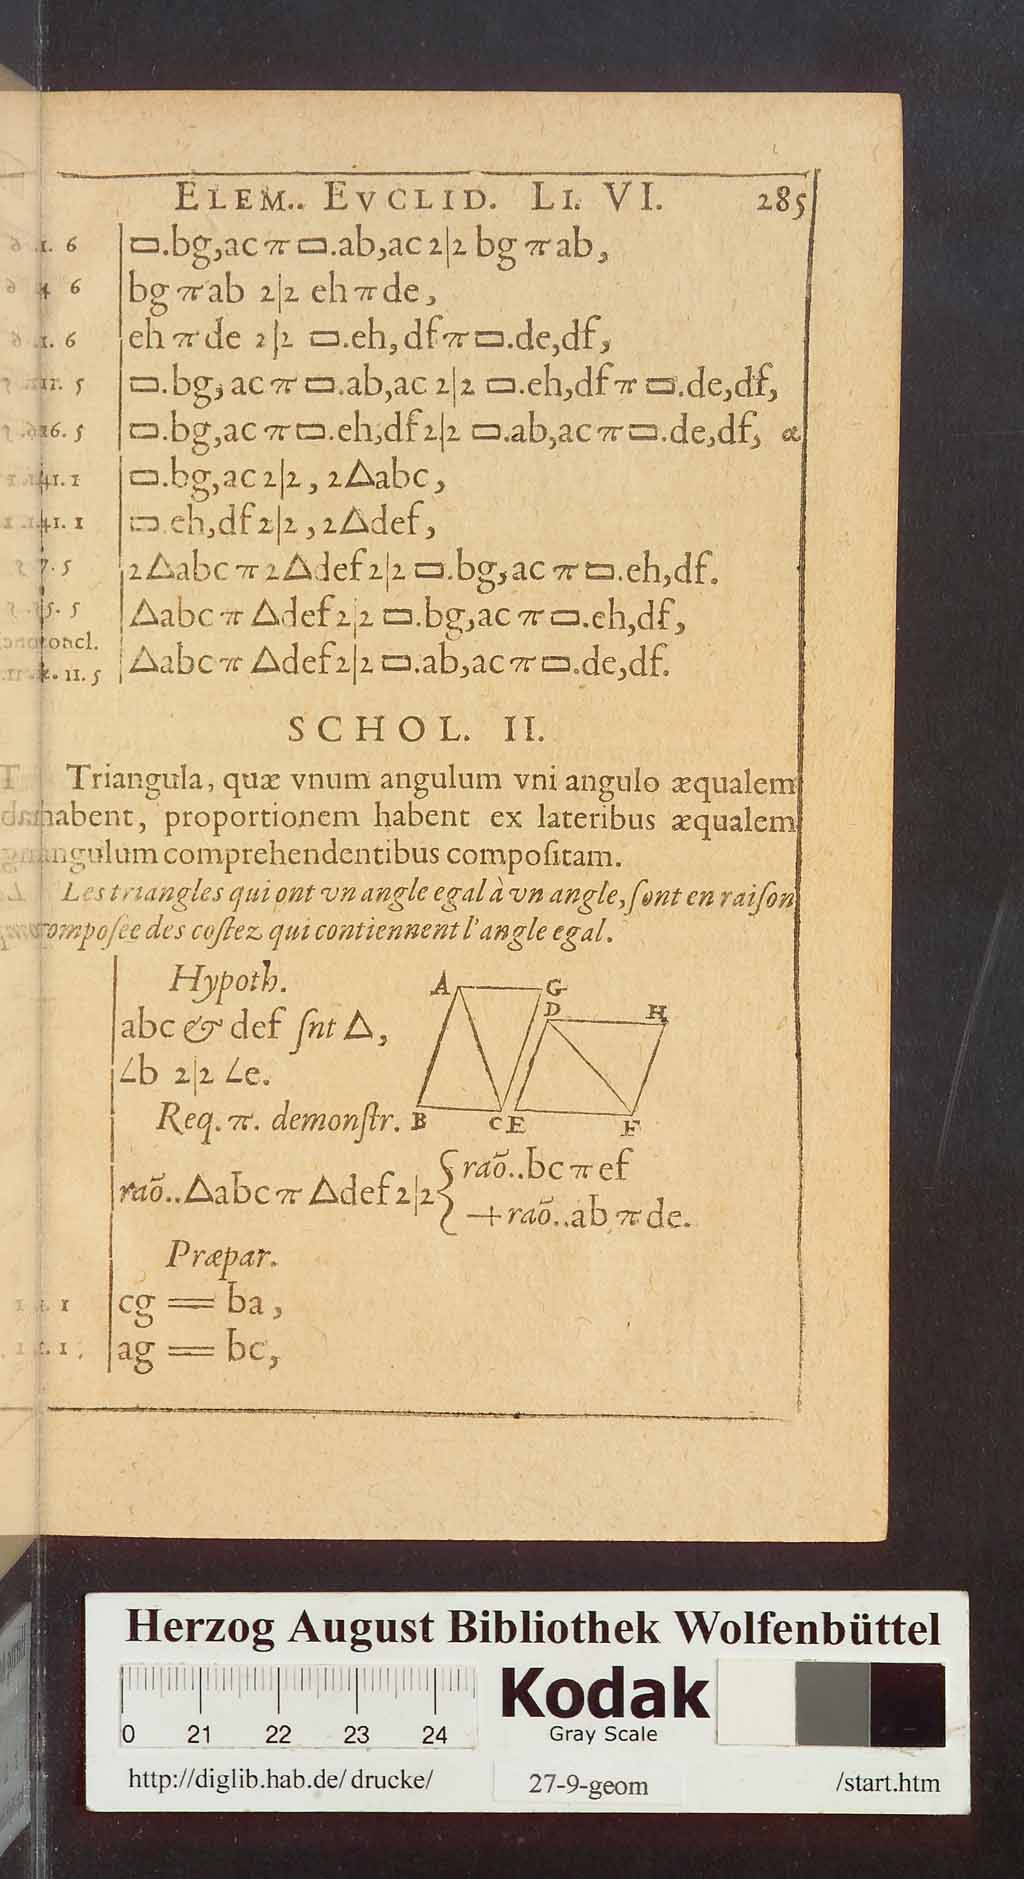 ELEM.. EVCLID. LI. VI. 285
1. 6 ▭.bg,ac π ▭.ab,ac 2|2 bg π ab,
4 6 bg π ab 2|2 eh π de,
1. 6 eh π de 2|2 ▭.eh,df π ▭.de,df,
11. 5 ▭.bg, ac π ▭.ab,ac 2|2 ▭.eh,df π ▭.de,df,
16. 5 ▭.bg,ac π ▭.eh,df 2|2 ▭.ab,ac π ▭.de,df, α
41. 1 ▭.bg,ac 2|2, 2△abc,
41. 1 ▭.eh,df 2|2, 2△def,
7. 5 2△abc π 2△def 2|2 ▭.bg,ac π ▭.eh,df.
15. 5 △abc π △def 2|2 ▭.bg,ac π ▭.eh,df,
concl.
11. 5 △abc π △def 2|2 ▭.ab,ac π ▭.de,df.
SCHOL. II.
Triangula, quæ vnum angulum vni angulo æqualem
habent, proportionem habent ex lateribus æqualem
angulum comprehendentibus compoſitam.
Les triangles qui ont vn angle egal à vn angle, ſont en raiſon
compoſée des coſtez qui contiennent l'angle egal.
Hypoth.
abc & def ſnt △,
∠b 2|2 ∠e.
Req. π. demonſtr.
A G
D H
B C E F
raõ..△abc π △def 2|2 { raõ..bc π ef
+raõ..ab π de.
Præpar.
1 cg == ba,
1. 1 ag == bc,
Herzog August Bibliothek Wolfenbüttel
0 21 22 23 24
Kodak
Gray Scale
http://diglib.hab.de/drucke/ 27-9-geom /start.htm